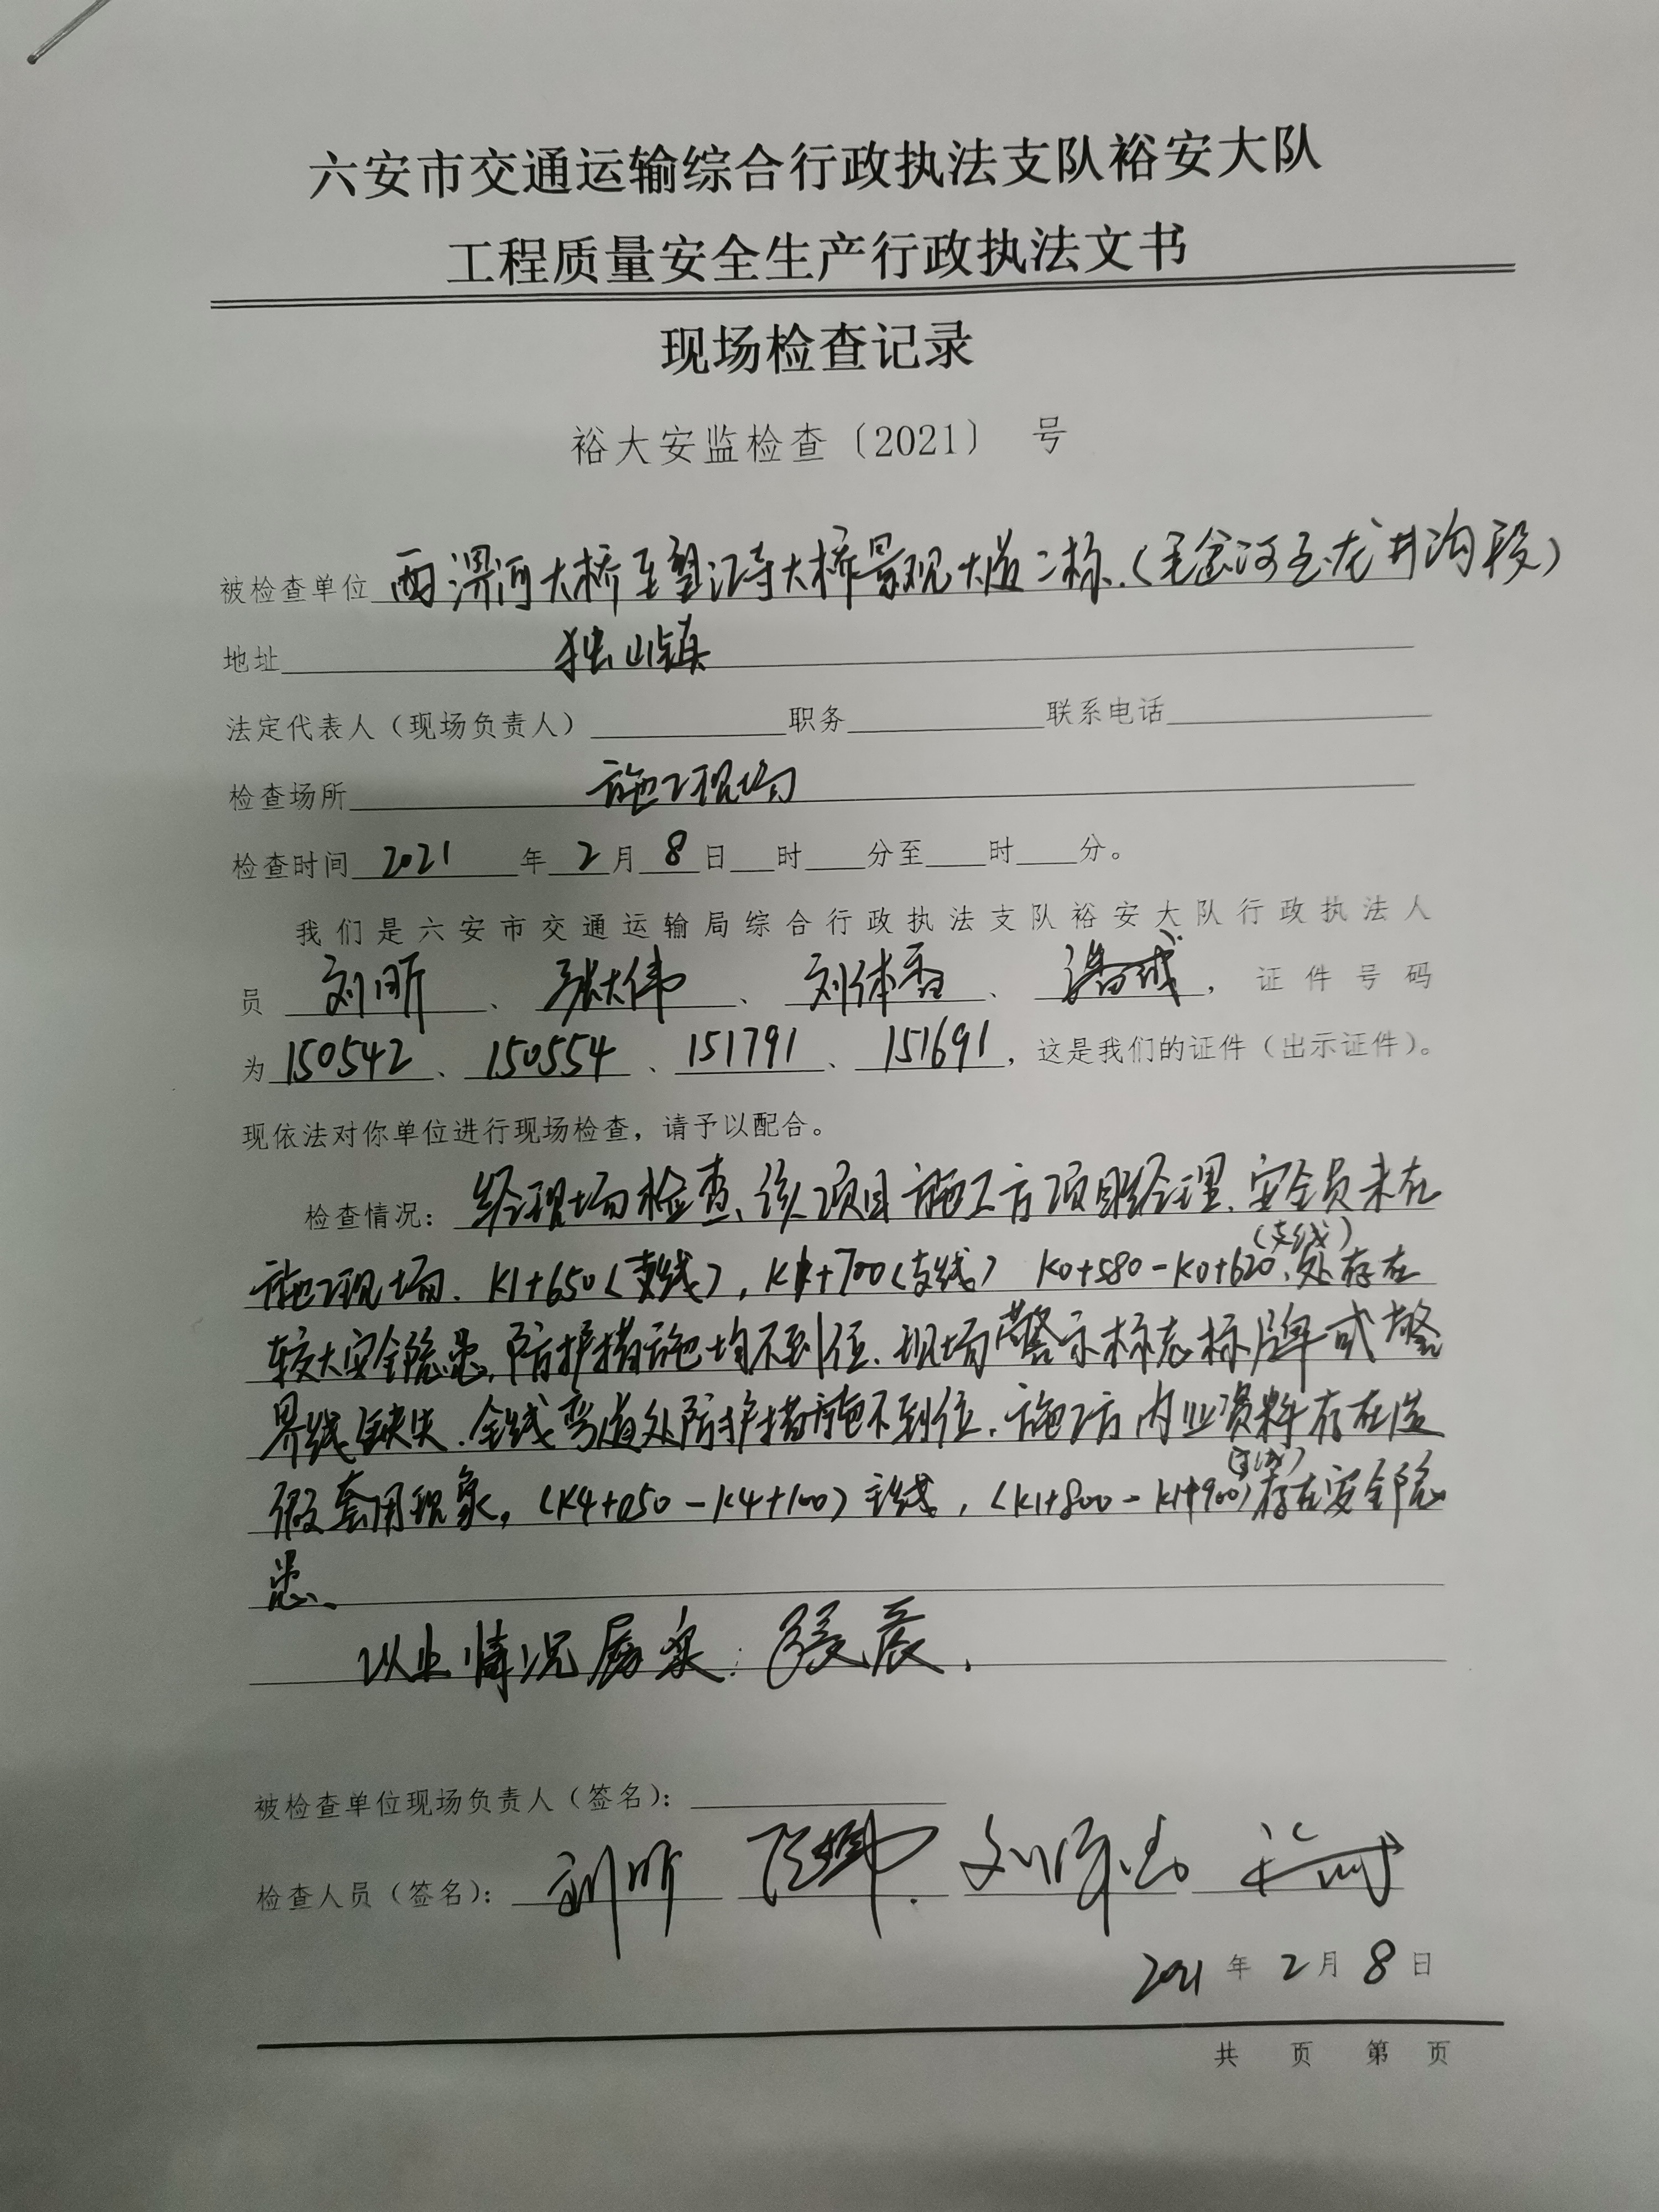 六安市交通运输综合行政执法支队裕安大队
工程质量安全生产行政执法文书
现场检查记录
裕大安监检查〔2021〕 号
被检查单位 西淠河大桥至望江寺大桥景观大道二标.(毛岔河至龙井沟段)
地址 独山镇
法定代表人（现场负责人） 职务 联系电话
检查场所 施工现场
检查时间 2021 年 2 月 8 日 时 分至 时 分。
我们是六安市交通运输局综合行政执法支队裕安大队行政执法人
员 刘昕 、 张大伟 、 刘体香 、 ，证件号码
为 150542 、 150554 、 151791 、 151691 ，这是我们的证件（出示证件）。
现依法对你单位进行现场检查，请予以配合。
检查情况： 经现场检查、该项目施工方项目经理、安全员未在
(支线)
施工现场. K1+650(支线), K1+700(支线) K0+580-K0+620、处存在
较大安全隐患, 防护措施均不到位. 现场警示标志标牌或警
界线缺失. 全线弯道处防护措施不到位. 施工方内业资料存在造
(支线)
假套用现象, (K4+050-K4+100)主线, (K1+800-K1+900)存在安全隐
患、
以上情况属实:
被检查单位现场负责人（签名）：
检查人员（签名）： 刘昕
2021 年 2 月 8 日
共 页 第 页